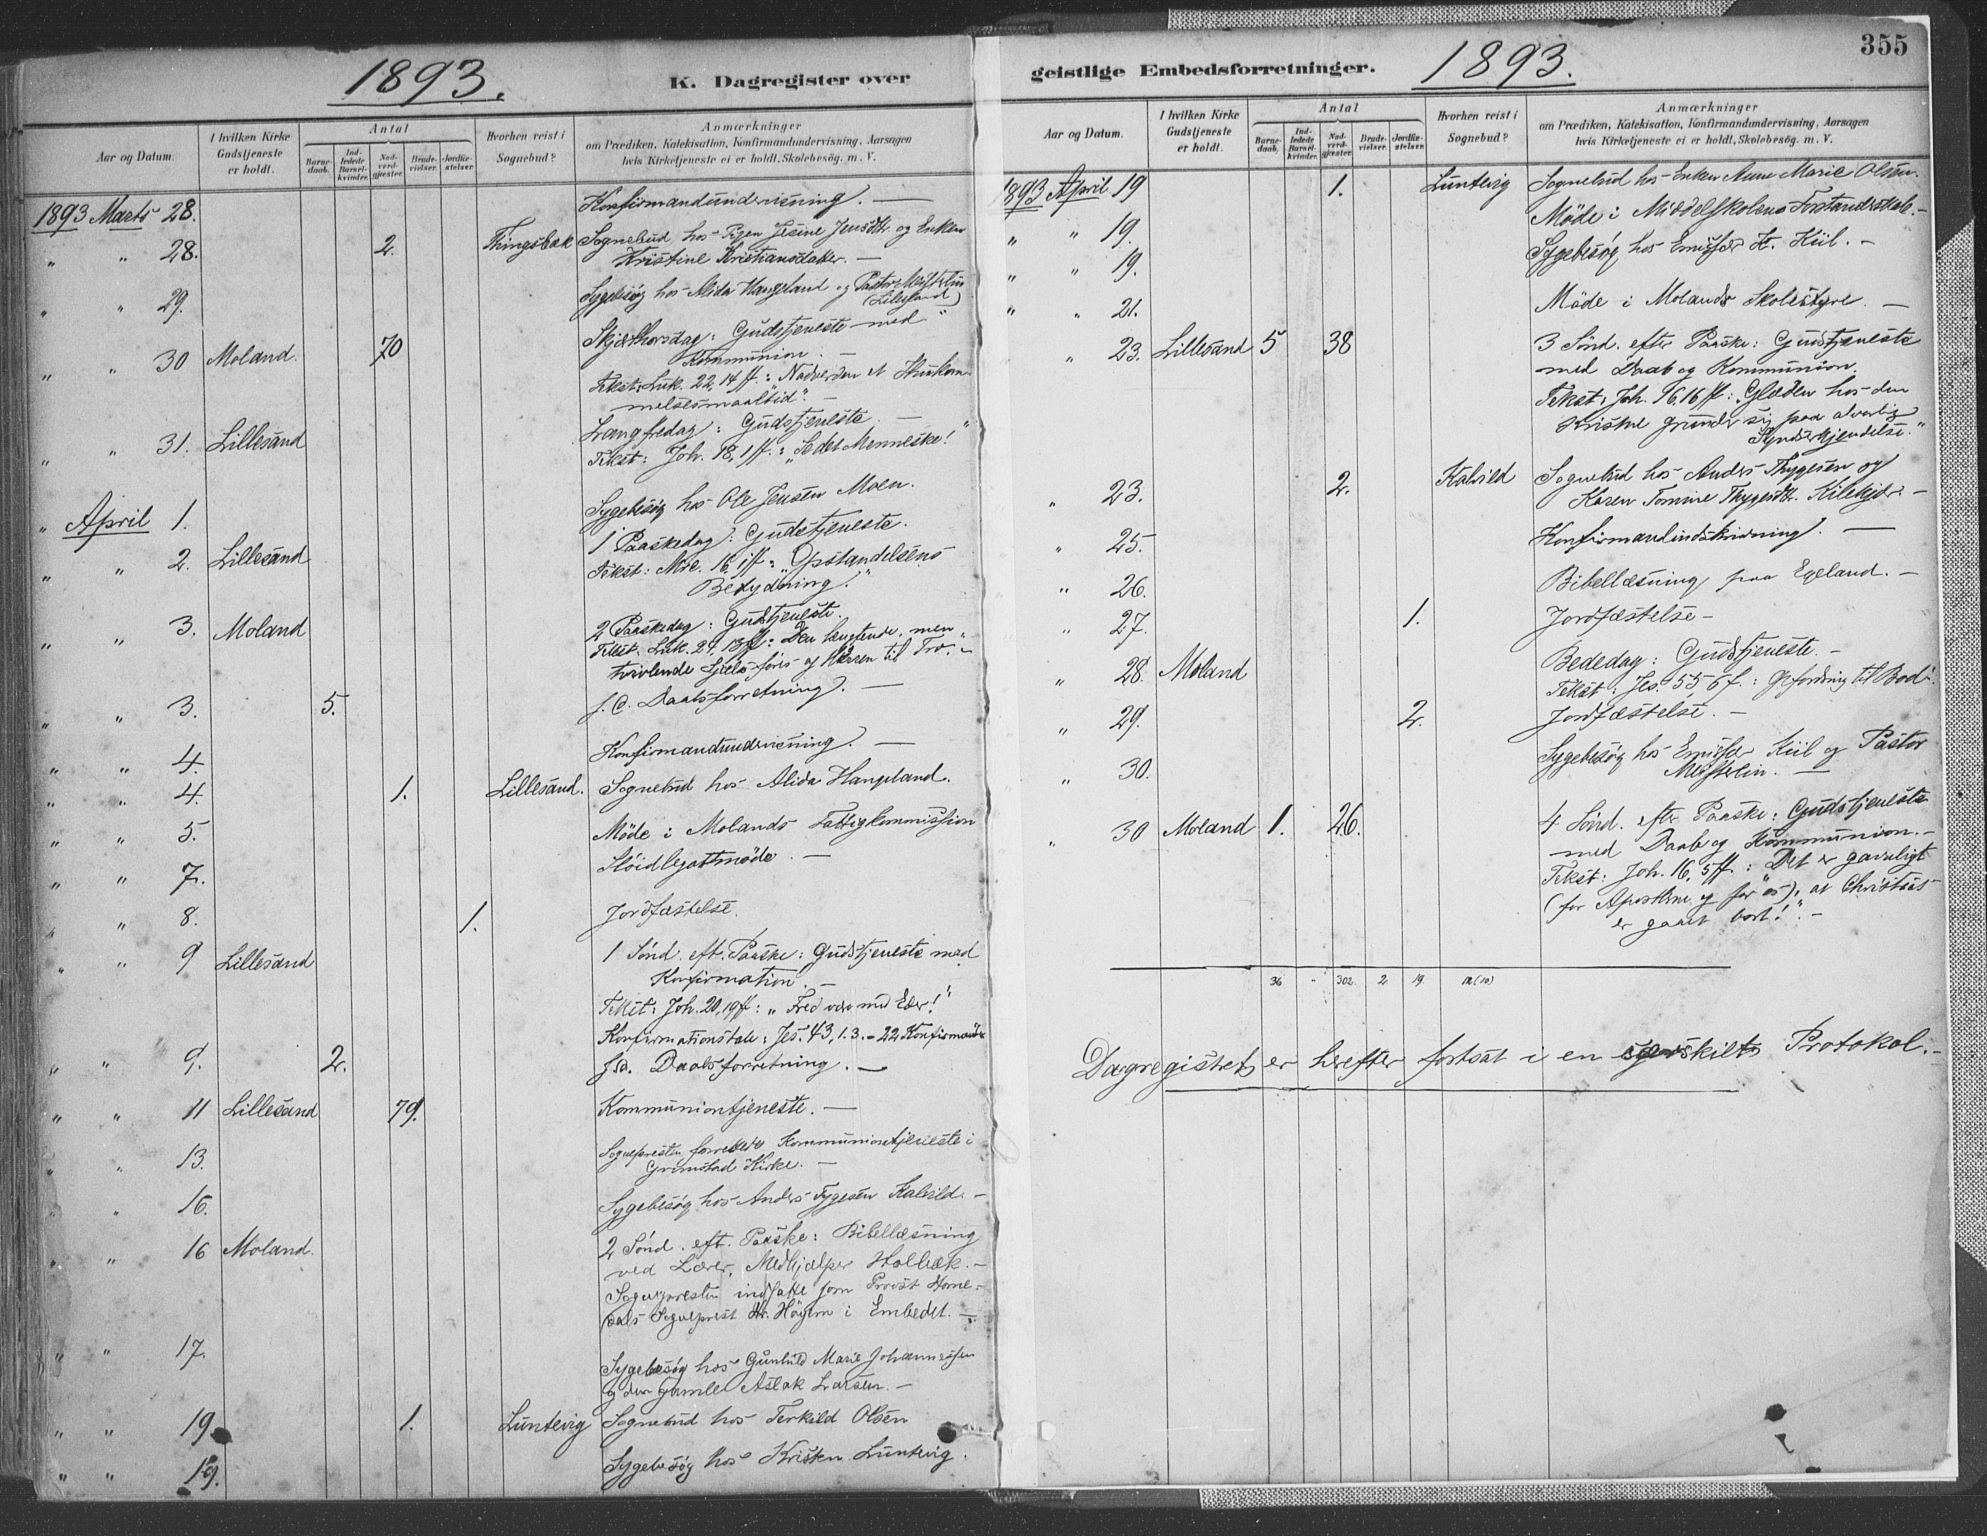 1893.
K. Dagregister over
Aar og Datum.
I hvilken Kirke Gudstjeneste er holdt.
Antal
Barne-daab.
Ind-ledede Barsel-kvinder.
Nad-verd-gjæster.
Brude-vielser.
Jordfæ-stelser.
Hvorhen reist i Sognebud?
Anmærkninger
om Prædiken, Katekisation, Konfirmandundervisning, Aarsagen
hvis Kirketjeneste ei er holdt, Skolebesøg. m. V.
1893 Marts 28. Konfirmandundervisning. —
" " 28. 2. Thingsbak Sognebud hos Pigen Jesine Jensdtr. og Enken
Kristine Kristiansdatter. —
" " 29. Sygebesøg hos Alida Hangeland og Pastor Meistelin
(Lillesand)
" " 30 Moland. 70 Skjærthorsdag: Gudstjeneste med
Kommunion. —
Tekst: Luk. 22, 14 ff.: "Nadverden et Ihukom-
melsesmaaltid". —
" " 31. Lillesand Langfredag: Gudstjeneste. —
Tekst: Joh. 18, 1 ff.: "Se det Menneske!"
" April 1. Sygebesøg hos Ole Jensen Moen.
" " 2. Lillesand 1 Paaskedag: Gudstjeneste.
Tekst: Mrc. 16, 1 ff: "Opstandelsens
Betydning!"
" " 3. Moland 2 Paaskedag: Gudstjeneste.
Tekst: Luk. 24, 13 ff: Den længtende, men
tvivlende Sjæl føres af Herren til Tro. —
" " 3. 5. f. C. Daabsforretning. —
" " 4. Konfirmandundervisning. —
" " 4. 1. Lillesand. Sognebud hos Alida Hangeland.
" " 5. Møde i Molands Fattigkommission
" " 7. Sløidlegatmøde. —
" " 8. 1. Jordfæstelse.
" " 9 Lillesand 1 Sönd. eft. Paaske: Gudstjeneste med
Konfirmation. —
Tekst: Joh. 20, 19 ff: "Fred være med Eder!"
Konfirmationstale: Jes. 43, 1.3. - 22 Konfirmander
" " 9. 2. Daabsforretning. —
" " 11 Lillesand 79. Kommuniontjeneste. —
" " 13. Sognepresten forrettede Kommuniontjeneste i
Grimstad Kirke. —
" " 16. Sygebesøg hos Anders Tygesen Kalvild. —
" " 16 Moland. 2 Sönd. eft. Paaske: Bibellæsning
ved Lærer, Medhjælper Holbæk. —
Sognepresten indsatte som Provst Home-
dals Sogneprest Hr. Høyem i Embedet. —
" " 17. Sygebesøg hos Gunhild Marie Johannessen
og den gamle Aslak Larsen. —
" " 19. 1. Luntevig Sognebud hos Terkild Olsen
" " 19. Sygebesøg hos Kristen Luntevig.
355
geistlige Embedsforretninger.
1893.
Aar og Datum.
I hvilken Kirke Gudstjeneste er holdt.
Antal
Barne-daab.
Ind-ledede Barsel-kvinder.
Nad-verd-gjæster.
Brude-vielser.
Jordfæ-stelser.
Hvorhen reist i Sognebud?
Anmærkninger
om Prædiken, Katekisation, Konfirmandundervisning, Aarsagen
hvis Kirketjeneste ei er holdt, Skolebesøg. m. V.
1893 April 19 1. Luntevig Sognebud hos Enken Anne Marie Olsen.
" " 19. Møde i Middelskolens Forstanderskab. —
" " 19. Sygebesøg hos Emissær H. Kiil. —
" " 21. Möde i Molands Skolestyre. —
" 23. Lillesand 5 38 3 Sönd. efter Paaske: Gudstjeneste
med Daab og Kommunion.
Tekst: Joh. 16, 16 ff: "Glæden hos den
Kristne grunder sig paa alvorlig
Synderkjendelse."
" 23. 2. Kalvild Sognebud hos Anders Thygesen og
Karen Tomine Thygesdtr. Kilekjær. —
" 25. Konfirmandindskrivning. —
" 26. Bibellæsning paa Egeland. —
" 27. 1. Jordfæstelse —
" 28. Moland Bededag: Gudstjeneste. —
Tekst: Jes. 55 6 f.: Opfordring til Bod. —
" 29. 2. Jordfæstelse. —
" 30. Sygebesøg hos Emissær Kiil og Pastor
Meistelin. —
" 30 Moland 1. 26. 4 Sönd. efter Paaske: Gudstjeneste
med Daab og Kommunion. —
Tekst: Joh. 16, 5 ff.: "Det er gavnligt
(for Apostlene og for os), at Christus
er gaaet bort!" —
36 " 302. 2 19. 12 (10)
Dagregistret er herefter fortsat i en særskilt Protokol. —